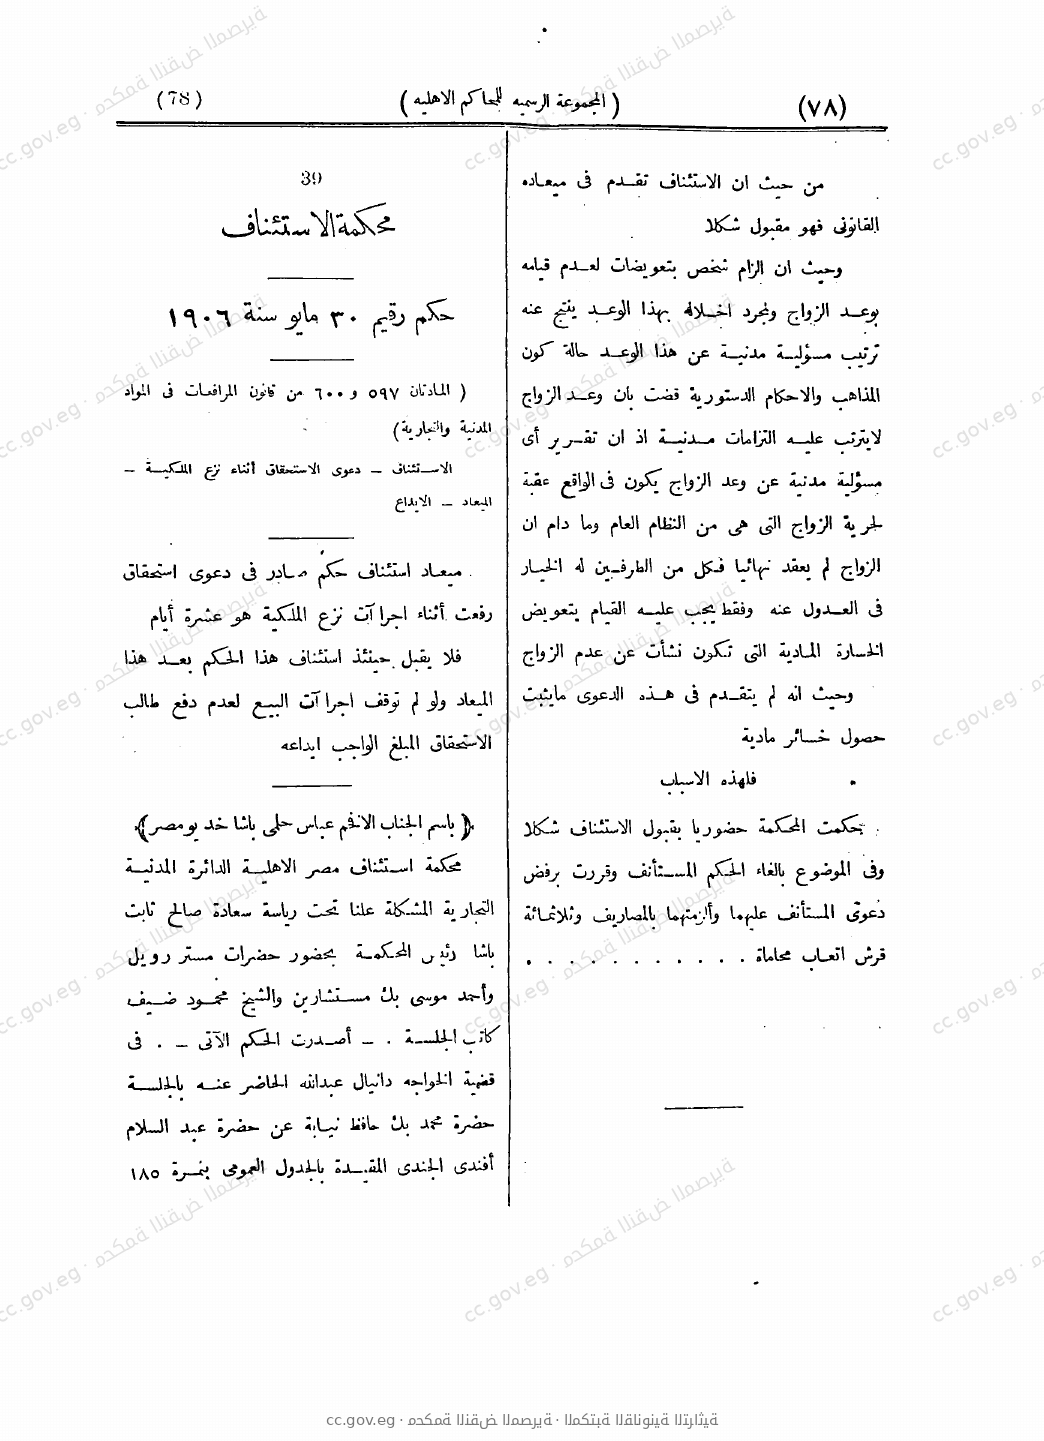 (٧٨)
( المجموعة الرسميه للمحاكم الاهليه )
(78)
من حيث ان الاستئناف تقدم فى ميعاده
القانونى فهو مقبول شكلا
وحيث ان الزام شخص بتعويضات لعدم قيامه
بوعد الزواج ولمجرد اخلاله بهذا الوعد ينتج عنه
ترتيب مسؤلية مدنية عن هذا الوعد حالة كون
المذاهب والاحكام الدستورية قضت بان وعد الزواج
لايترتب عليه التزامات مدنية اذ ان تقرير أى
مسؤلية مدنية عن وعد الزواج يكون فى الواقع عقبة
لحرية الزواج التى هى من النظام العام وما دام ان
الزواج لم يعقد نهائيا فكل من الطرفين له الخيار
فى العدول عنه وفقط يجب عليه القيام بتعويض
الخسارة المادية التى تكون نشأت عن عدم الزواج
وحيث انه لم يتقدم فى هذه الدعوى مايثبت
حصول خسائر مادية
فلهذه الاسباب
حكمت المحكمة حضوريا بقبول الاستئناف شكلا
وفى الموضوع بالغاء الحكم المستأنف وقررت برفض
دعوى المستأنف عليهما وألزمتهما بالمصاريف وثلاثمائة
قرش اتعاب محاماة . . . . . . . . . . .
39
محكمة الاستئناف
حكم رقيم ٣٠ مايو سنة ١٩٠٦
( المادتان ٥٩٧ و ٦٠٠ من قانون المرافعات فى المواد
المدنية والتجارية)
الاستئناف – دعوى الاستحقاق أثناء نزع الملكية –
الميعاد – الايداع
ميعاد استئناف حكم صادر فى دعوى استحقاق
رفعت أثناء اجراآت نزع الملكية هو عشرة أيام
فلا يقبل حينئذ استئناف هذا الحكم بعد هذا
الميعاد ولو لم توقف اجراآت البيع لعدم دفع طالب
الاستحقاق المبلغ الواجب ايداعه
﴿ باسم الجناب الافخم عباس حلمى باشا خديو مصر ﴾
محكمة استئناف مصر الاهلية الدائرة المدنية
التجارية المشكلة علنا تحت رياسة سعادة صالح ثابت
باشا رئيس المحكمة بحضور حضرات مستر رويل
وأحمد موسى بك مستشارين والشيخ محمود ضيف
كاتب الجلسة . – أصدرت الحكم الآتى – . فى
قضية الخواجه دانيال عبدالله الحاضر عنه بالجلسة
حضرة محمد بك حافظ نيابة عن حضرة عبد السلام
أفندى الجندى المقيدة بالجدول العمومى بنمرة ١٨٥
cc.gov.eg · محكمة النقض المصرية · المكتبة القانونية التراثية